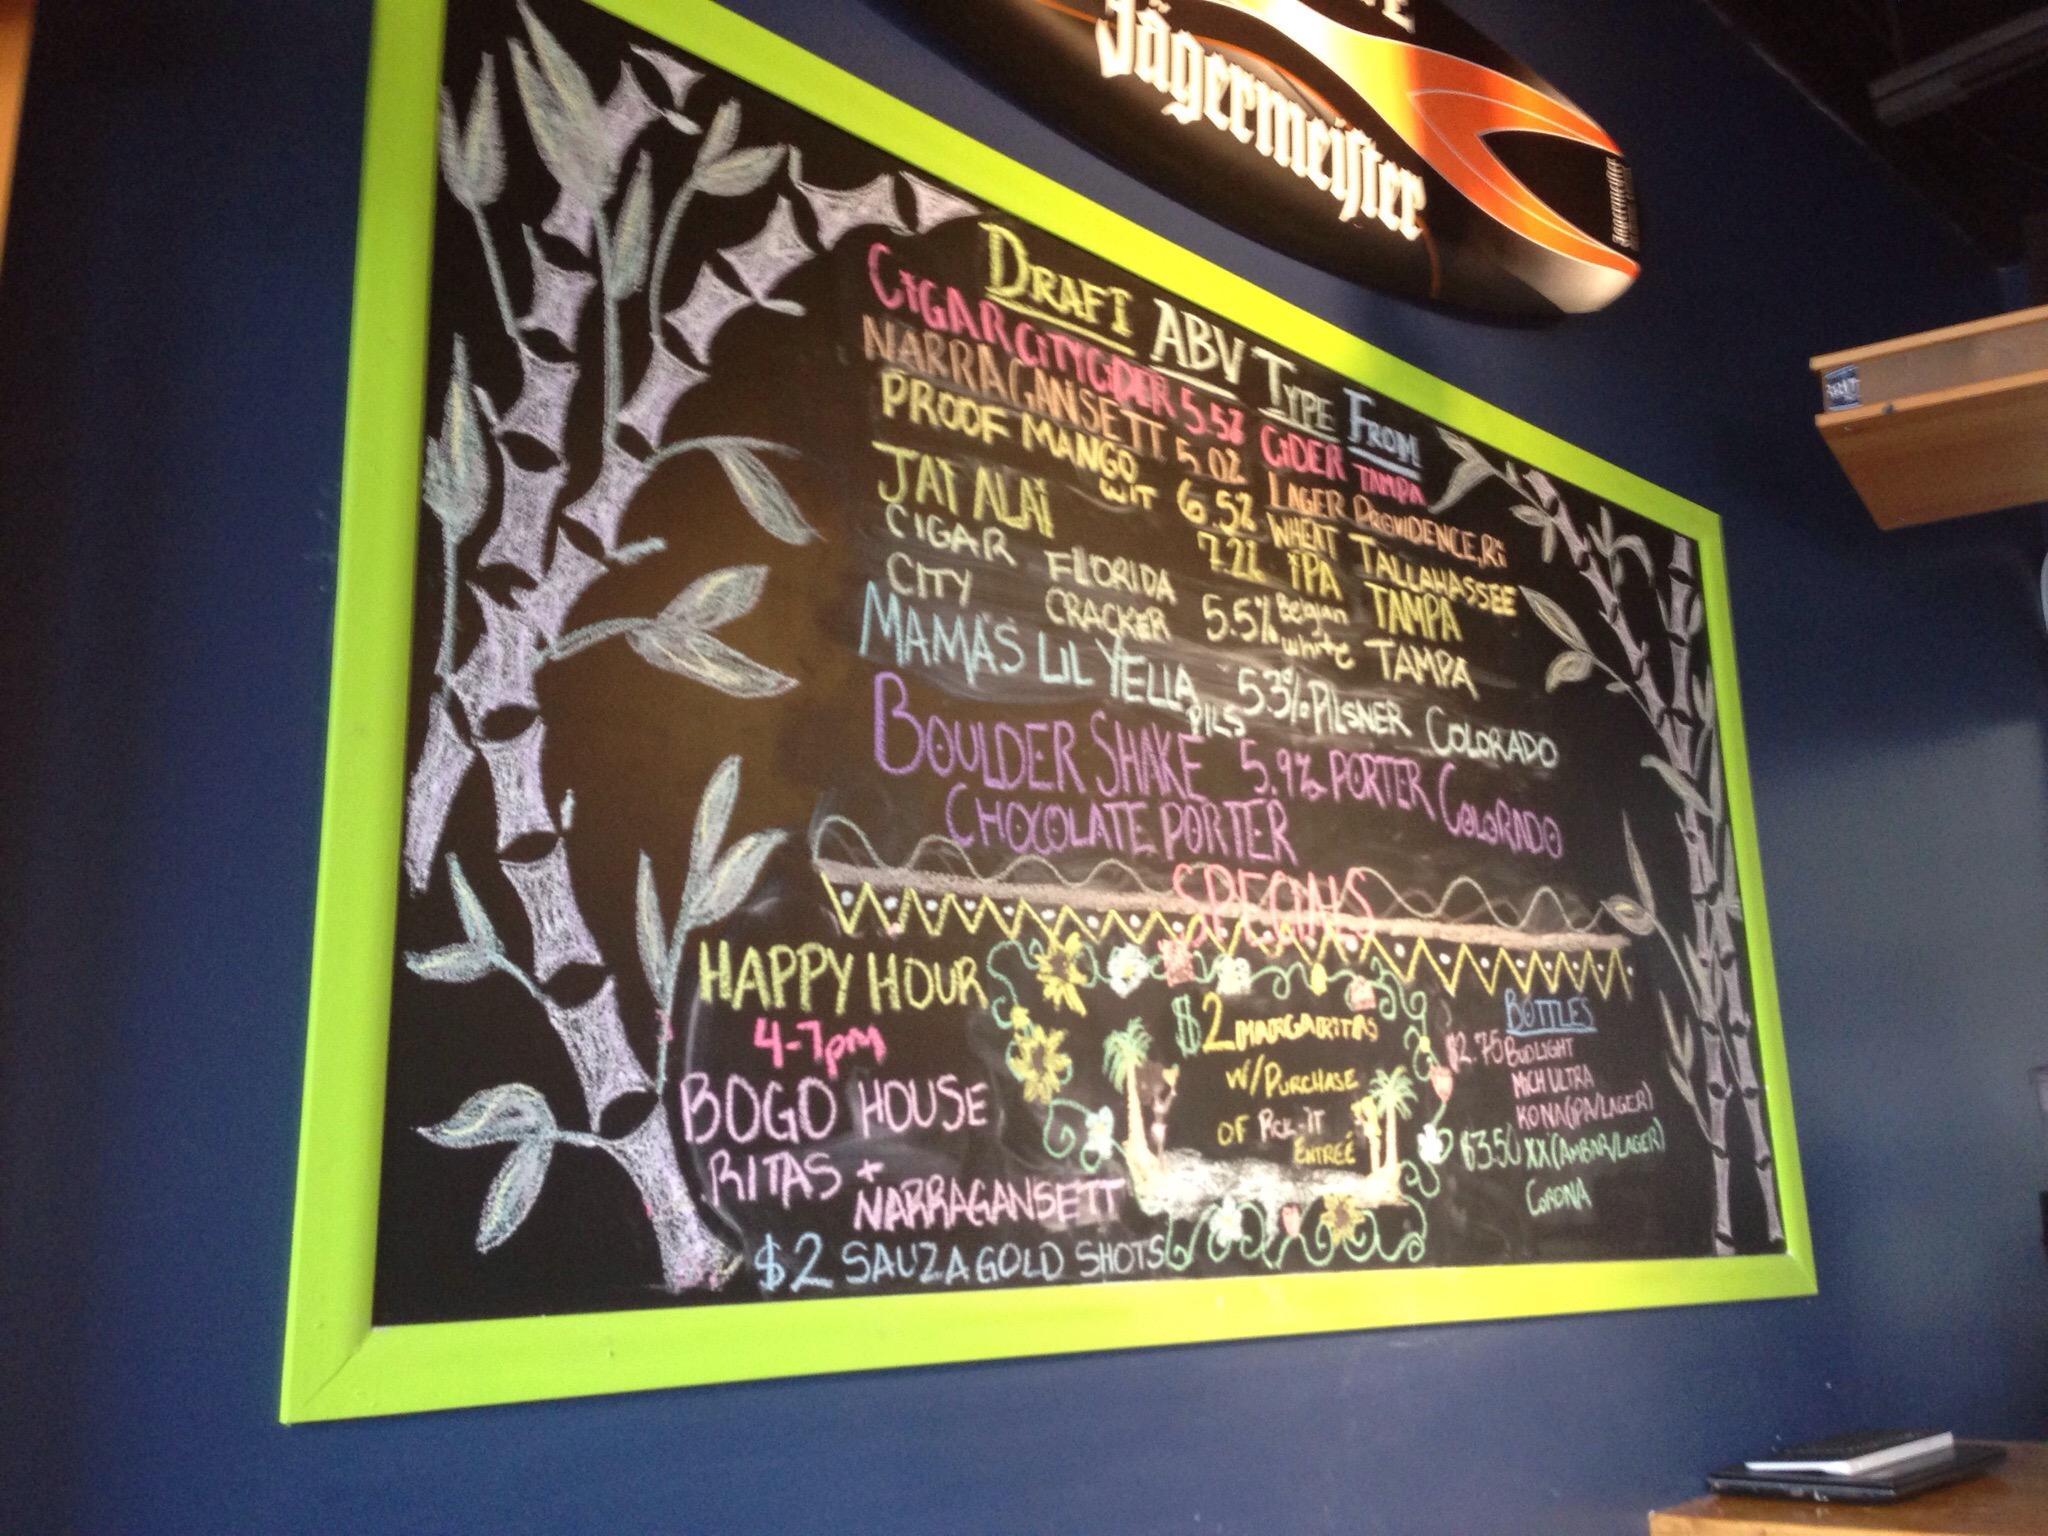 Jägermeister
Jägermeister
DRAFT ABV TYPE FROM
CIGAR CITY CIDER 5.5% CIDER TAMPA
NARRAGANSETT 5.0% LAGER PROVIDENCE, Ri
PROOF MANGO WIT 6.5% WHEAT TALLAHASSEE
JAi ALAi 7.2% IPA TAMPA
CIGAR CITY FLORIDA CRACKER 5.5% Belgian white TAMPA
MAMAS LIL YELLA PILS 5.3% PILSNER COLORADO
BOULDER SHAKE 5.9% PORTER COLORADO
CHOCOLATE PORTER
SPECIALS
HAPPY HOUR
4-7pm
BOGO HOUSE
RITAS +
NARRAGANSETT
$2 SAUZA GOLD SHOTS
$2 MARGARITAS
W/PURCHASE
OF PICK-IT
ENTREÉ
BOTTLES
$2.75 BUDLIGHT
MICH ULTRA
KONA (IPA/LAGER)
$3.50 XX (AMBAR/LAGER)
CORONA